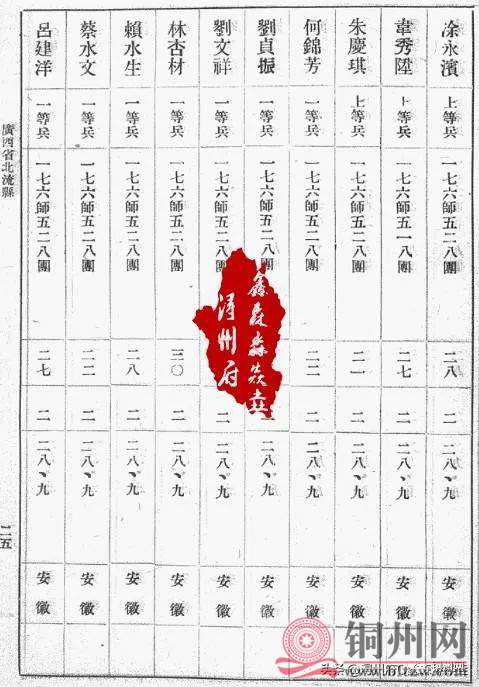 涂永濱 上等兵 一七六師五二八團 二八 二 二八、九 安徽
韋秀陞 上等兵 一七六師五一八團 二七 二 二八、九 安徽
朱慶琪 上等兵 一七六師五二八團 二一 二 二八、九 安徽
何錦芳 一等兵 一七六師五二八團 二二 二 二八、九 安徽
劉貞振 一等兵 一七六師五二八團 二八、九 安徽
劉文祥 一等兵 一七六師五二八團 二 二八、九 安徽
林杏材 一等兵 一七六師五二八團 三〇 二 二八、九 安徽
賴水生 一等兵 一七六師五二八團 二八 二 二八、九 安徽
蔡水文 一等兵 一七六師五二八團 二二 二 二八、九 安徽
呂建洋 一等兵 一七六師五二八團 二七 二 二八、九 安徽
廣西省北流縣
二五
鑫森淼焱垚
潯州府
铜州网